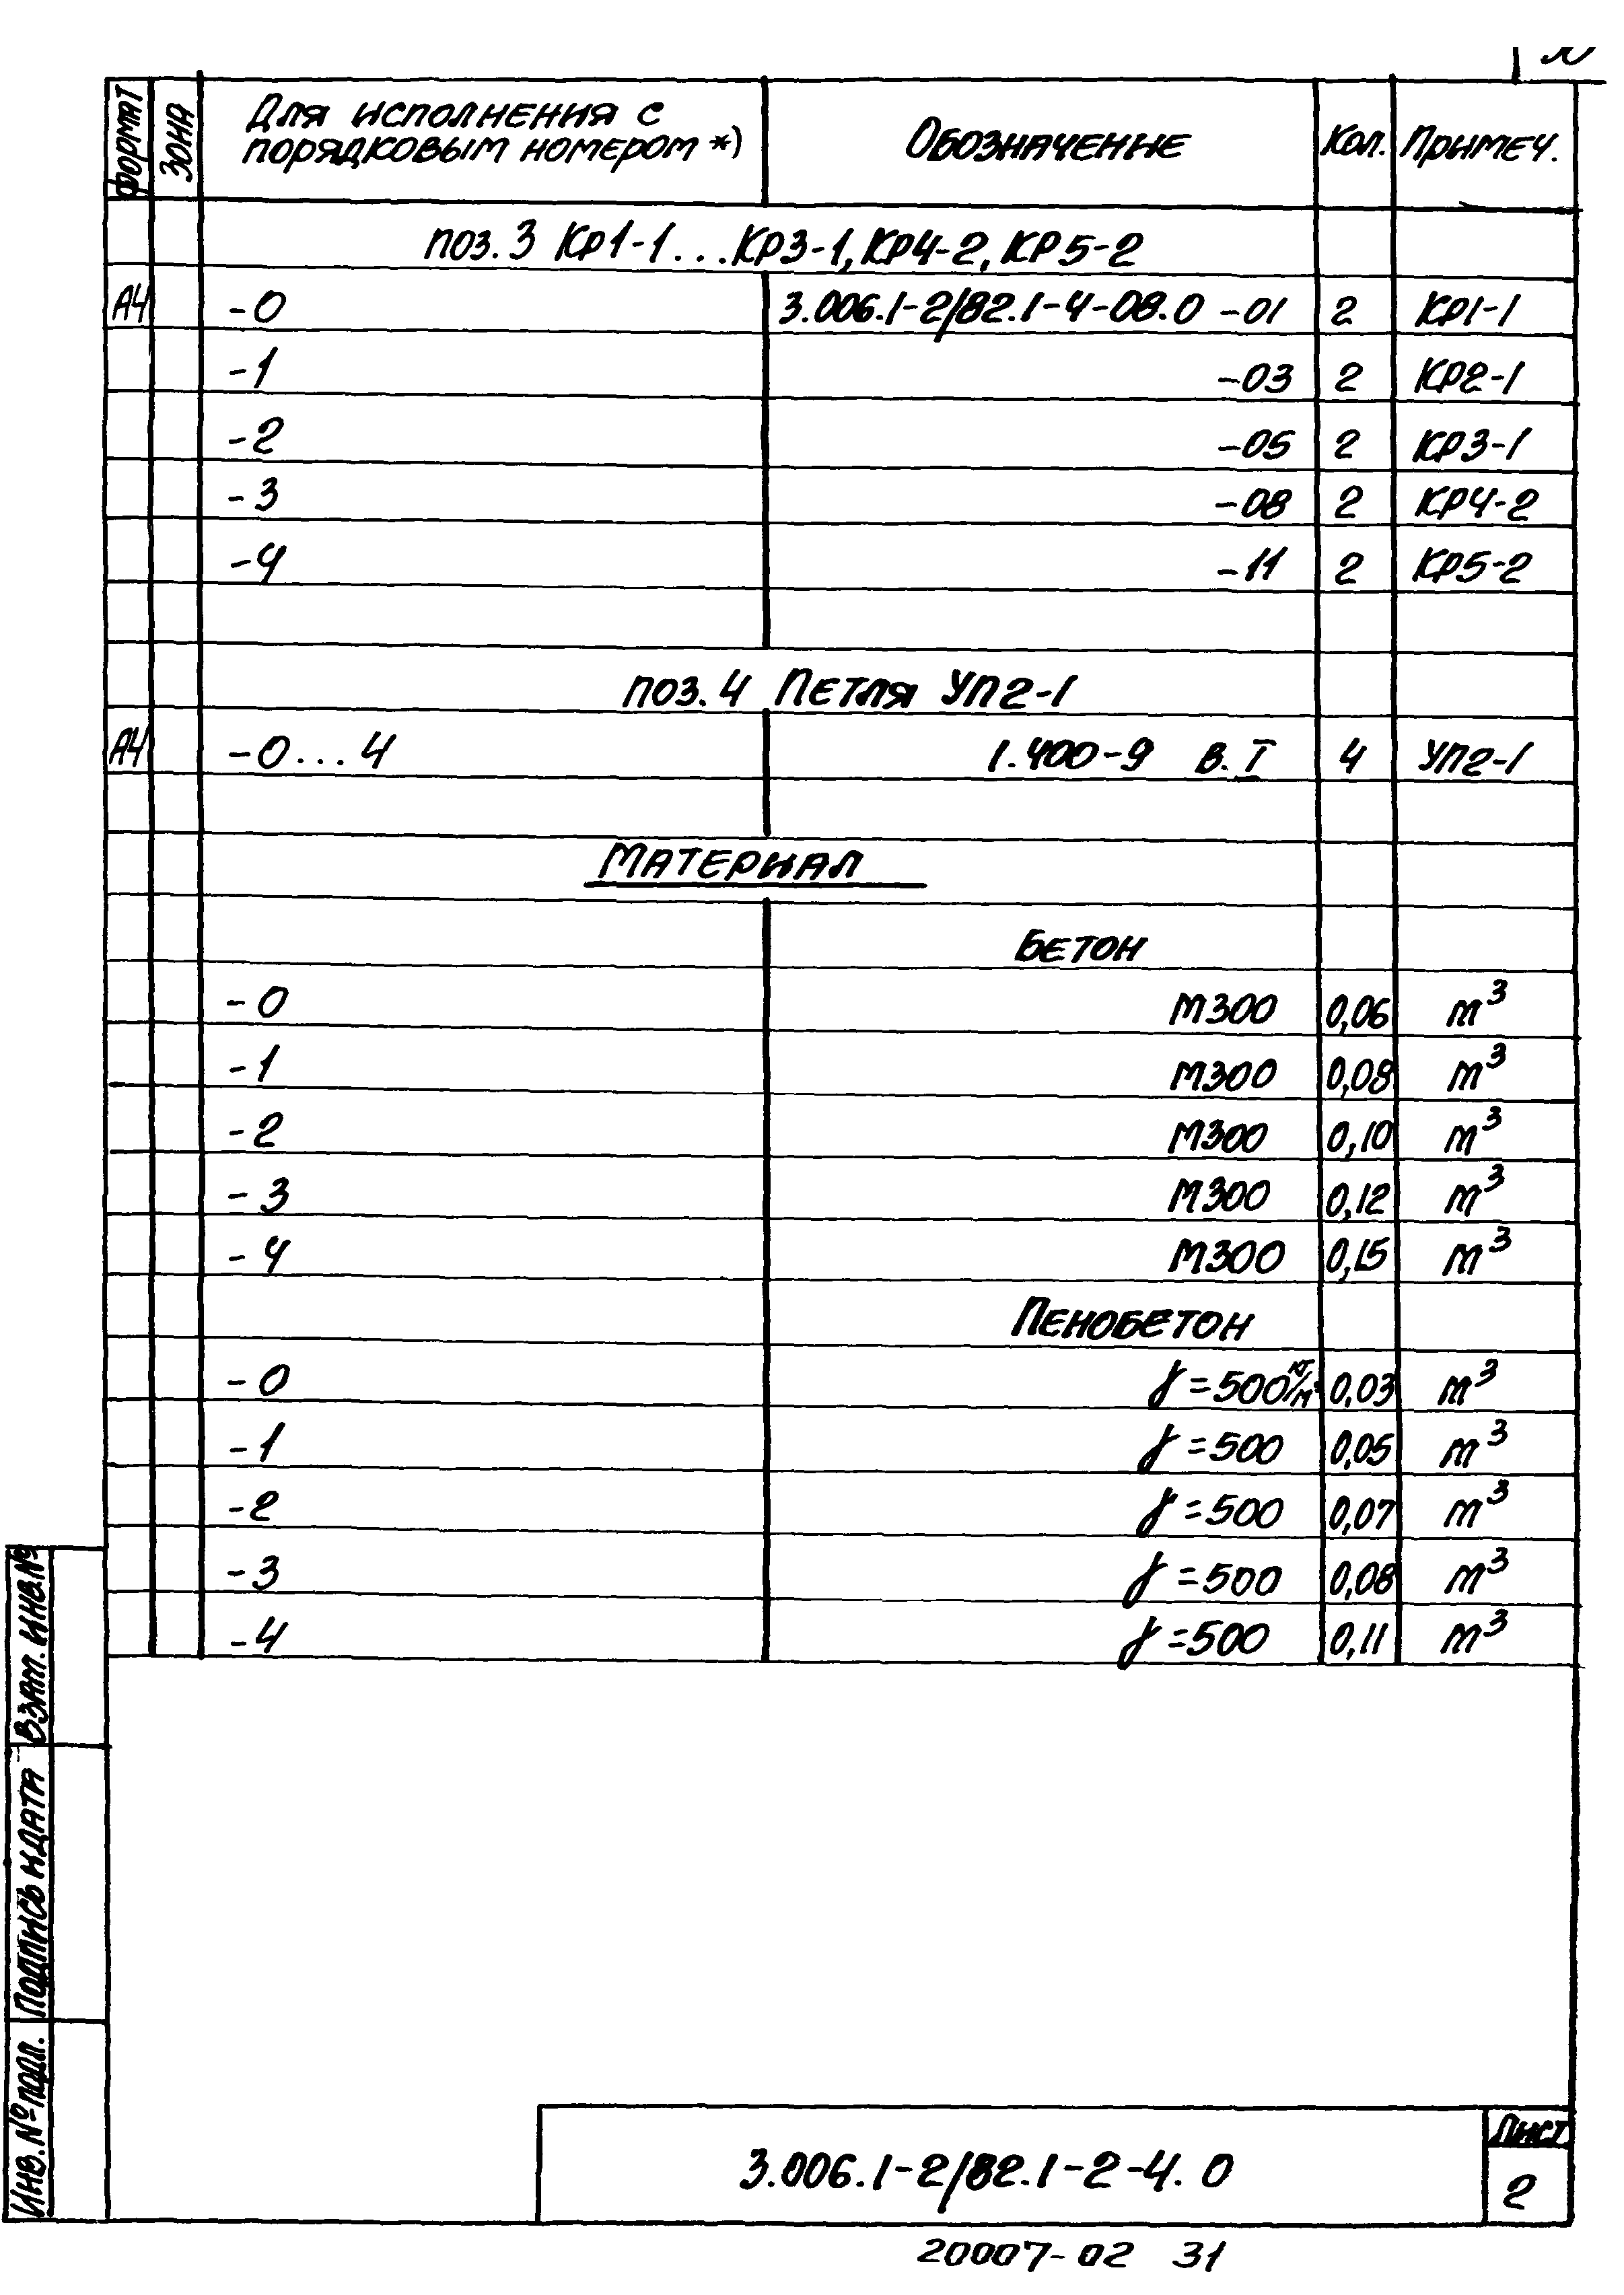 Формат Зона Для исполнения с порядковым номером *) Обозначение Кол. Примеч.
поз. 3 КР1-1...КР3-1, КР4-2, КР5-2
А4 -0 3.006.1-2/82.1-4-08.0 -01 2 КР1-1
-1 -03 2 КР2-1
-2 -05 2 КР3-1
-3 -08 2 КР4-2
-4 -11 2 КР5-2
поз. 4 Петля УП2-1
А4 -0...4 1.400-9 В. I 4 УП2-1
Материал
Бетон
-0 М300 0,06 м³
-1 М300 0,08 м³
-2 М300 0,10 м³
-3 М300 0,12 м³
-4 М300 0,15 м³
Пенобетон
-0 γ=500 кг/м³ 0,03 м³
-1 γ=500 0,05 м³
-2 γ=500 0,07 м³
-3 γ=500 0,08 м³
-4 γ=500 0,11 м³
Взам. инв.№
Подпись и дата
Инв.№ подл.
3.006.1-2/82.1-2-4.0
Лист
2
20007-02 31